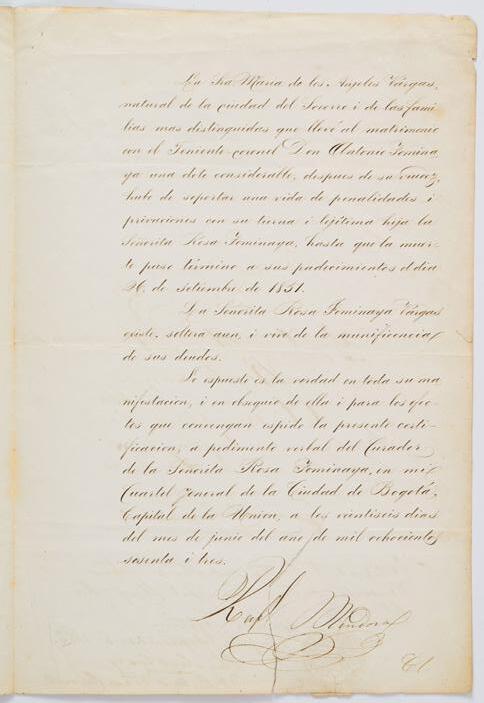 La Sra Maria de los Anjeles Várgas,
natural de la ciudad del Socorro i de las fami-
lias mas distinguidas que llevó al matrimonio
con el Teniente coronel Don Antonio Fomina
ya una dote considerable, despues de su viudez,
hubo de soportar una vida de penalidades i
privaciones con su tierna i lejítima hija la
Señorita Rosa Fominaya, hasta que la muer-
te puso término a sus padecimientos el dia
26 de setiembre de 1851.
La Señorita Rosa Fominaya Várgas
existe, soltera aun, i vive de la munificencia
de sus deudos.
Lo espuesto es la verdad en toda su ma
nifestacion, i en obsequio de ella i para los efec-
tos que convengan espido la presente certi-
ficacion, a pedimento verbal del Curador
de la Señorita Rosa Fominaya, en mi
Cuartel jeneral de la Ciudad de Bogotá,
Capital de la Union, a los veintiseis dias
del mes de junio del año de mil ochocientos
sesenta i tres.
Raf. Mendoza